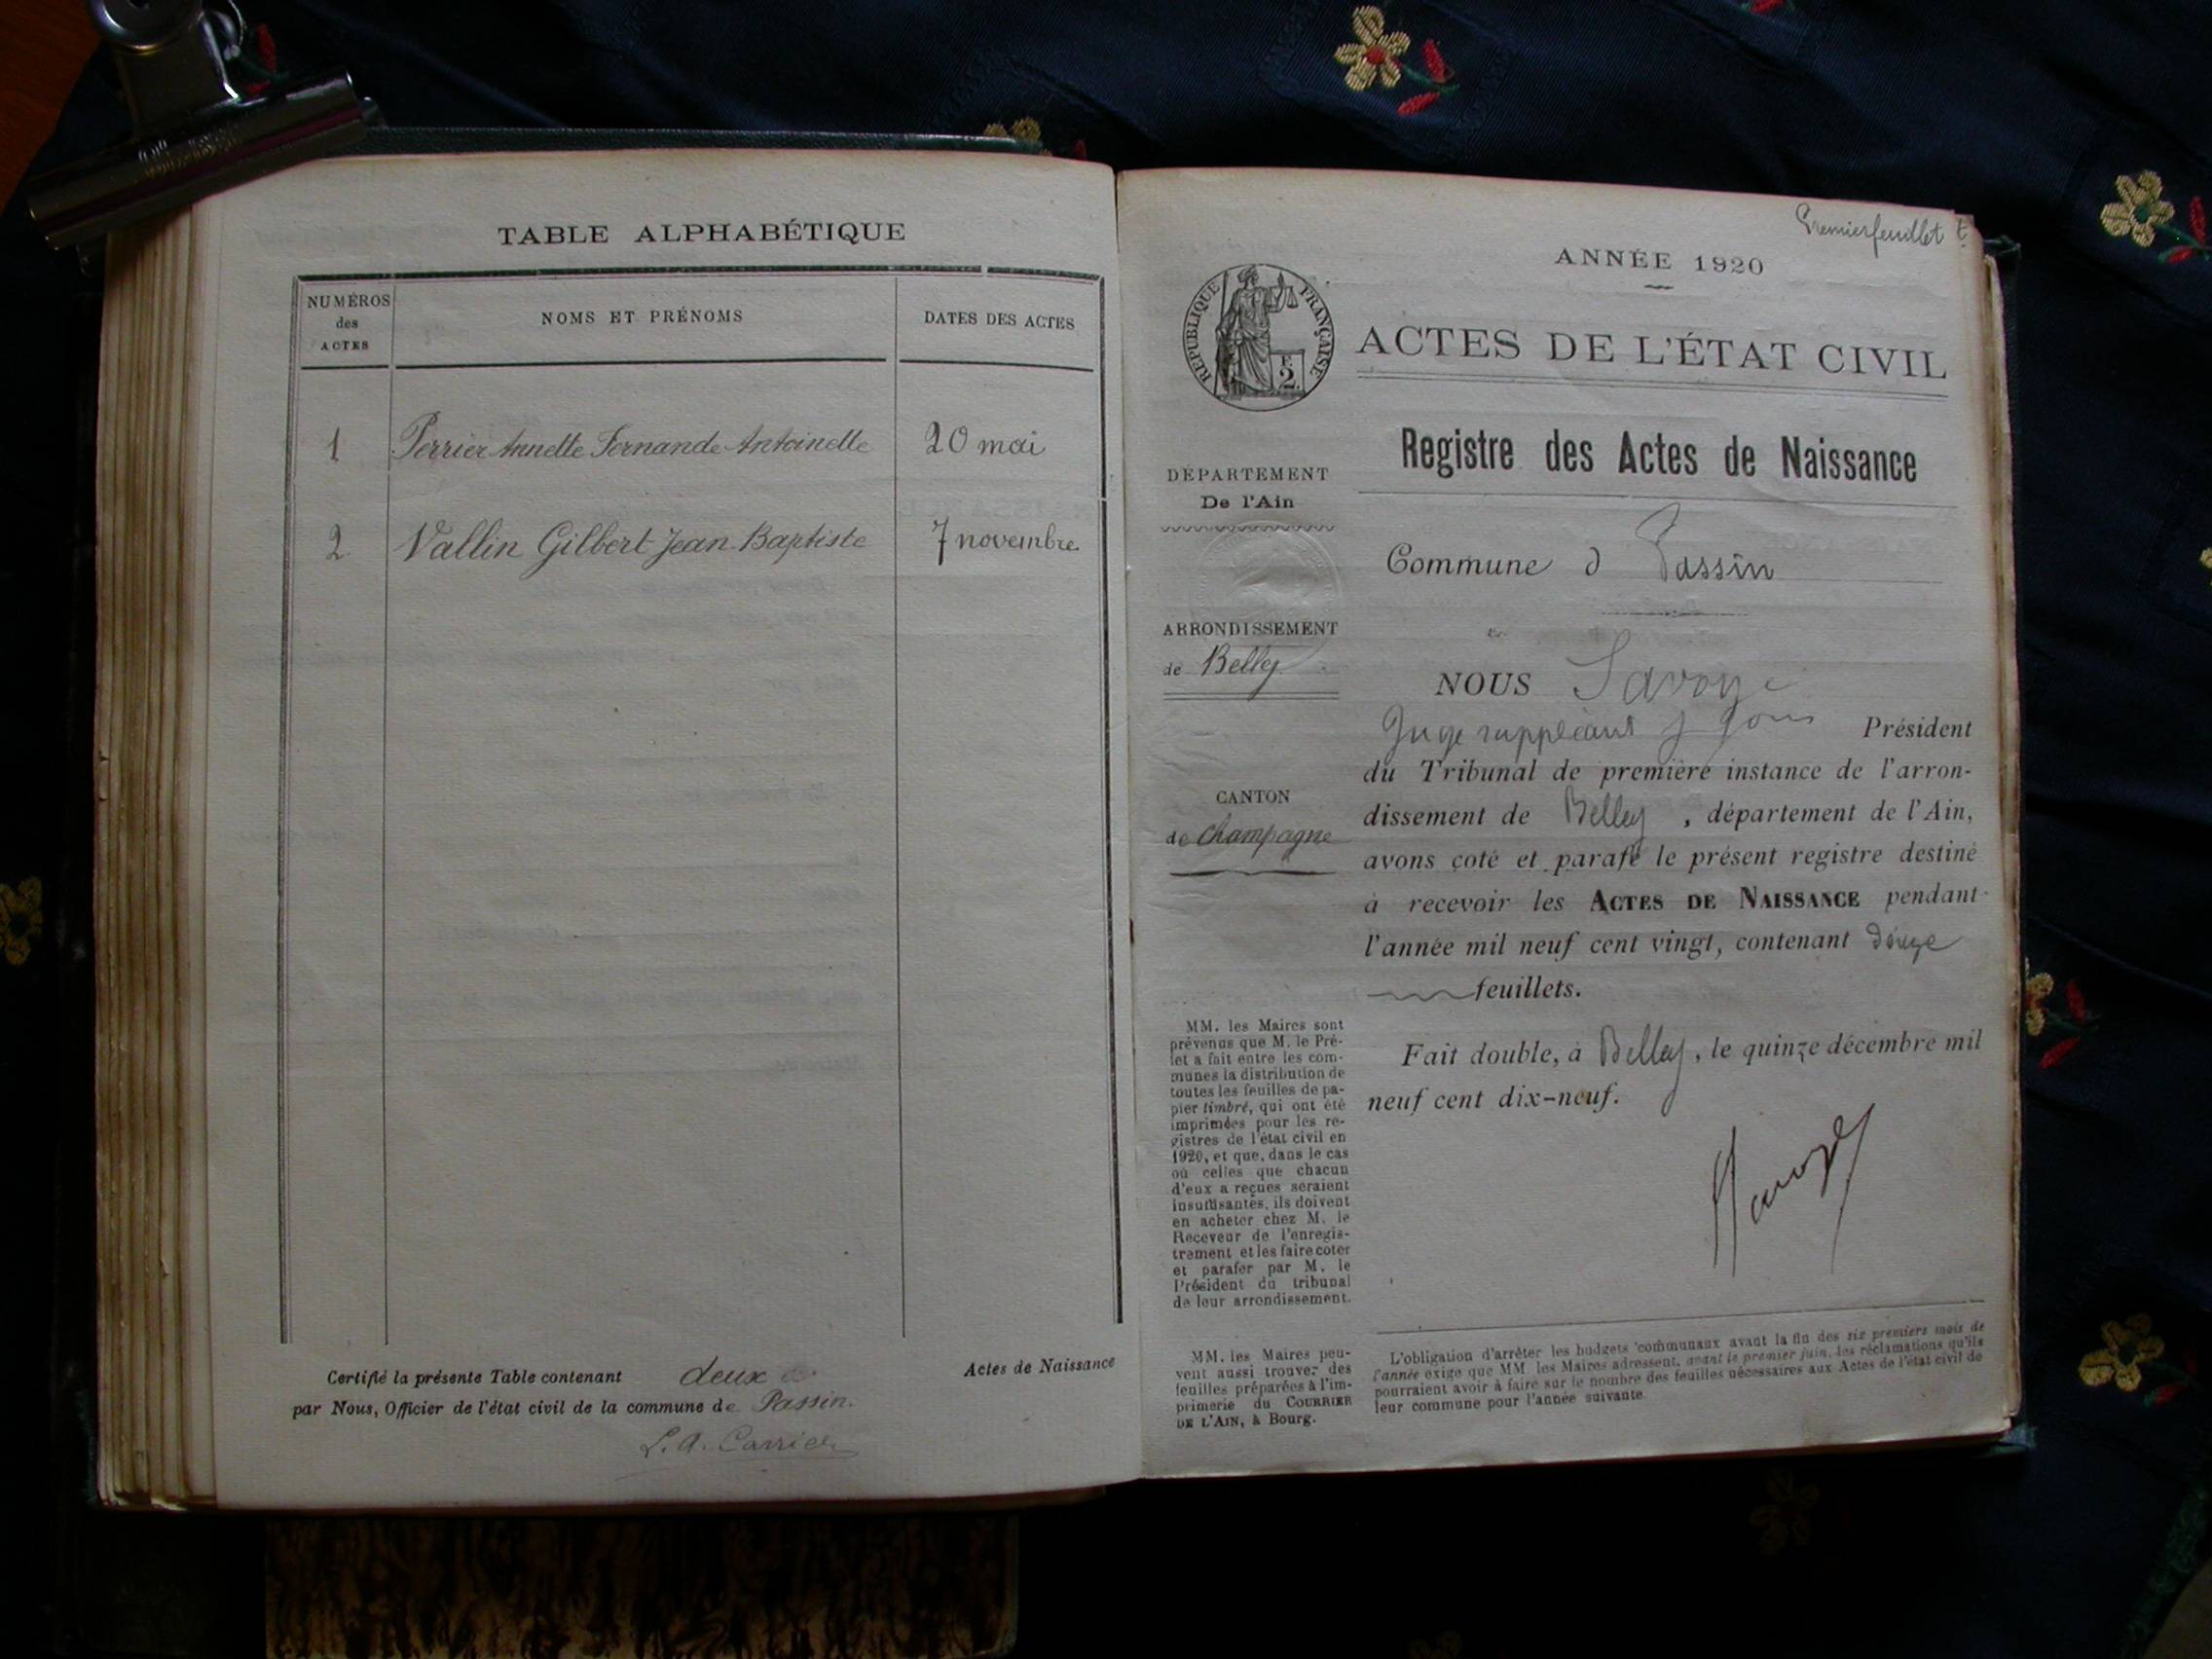 TABLE ALPHABÉTIQUE
NUMÉROS
des
ACTES
NOMS ET PRÉNOMS
DATES DES ACTES
1 Perrier Annette Fernande Antoinette 20 mai
2 Vallin Gilbert Jean-Baptiste 7 novembre
Certifié la présente Table contenant deux Actes de Naissance
par Nous, Officier de l'état civil de la commune de Passin.
L. A. Carrier
Premier feuillet
ANNÉE 1920
RÉPUBLIQUE FRANÇAISE
2
ACTES DE L'ÉTAT CIVIL
Registre des Actes de Naissance
DÉPARTEMENT
De l'Ain
Commune d Passin
ARRONDISSEMENT
de Belley
NOUS Savoye
Juge suppléant Président
du Tribunal de première instance de l'arron-
dissement de Belley, département de l'Ain,
avons coté et parafé le présent registre destiné
à recevoir les ACTES DE NAISSANCE pendant
l'année mil neuf cent vingt, contenant douze
feuillets.
CANTON
de Champagne
Fait double, à Belley, le quinze décembre mil
neuf cent dix-neuf.
MM. les Maires sont
prévenus que M. le Pré-
fet a fait entre les com-
munes la distribution de
toutes les feuilles de pa-
pier timbré, qui ont été
imprimées pour les re-
gistres de l'état civil en
1920, et que, dans le cas
où celles que chacun
d'eux a reçues seraient
insuffisantes, ils doivent
en acheter chez M. le
Receveur de l'enregis-
trement et les faire coter
et parafer par M. le
Président du tribunal
de leur arrondissement.
MM. les Maires peu-
vent aussi trouver des
feuilles préparées à l'im-
primerie du COURRIER
DE L'AIN, à Bourg.
L'obligation d'arrêter les budgets communaux avant la fin des six premiers mois de
l'année exige que MM. les Maires adressent, avant le premier juin, les réclamations qu'ils
pourraient avoir à faire sur le nombre des feuilles nécessaires aux Actes de l'état civil de
leur commune pour l'année suivante.